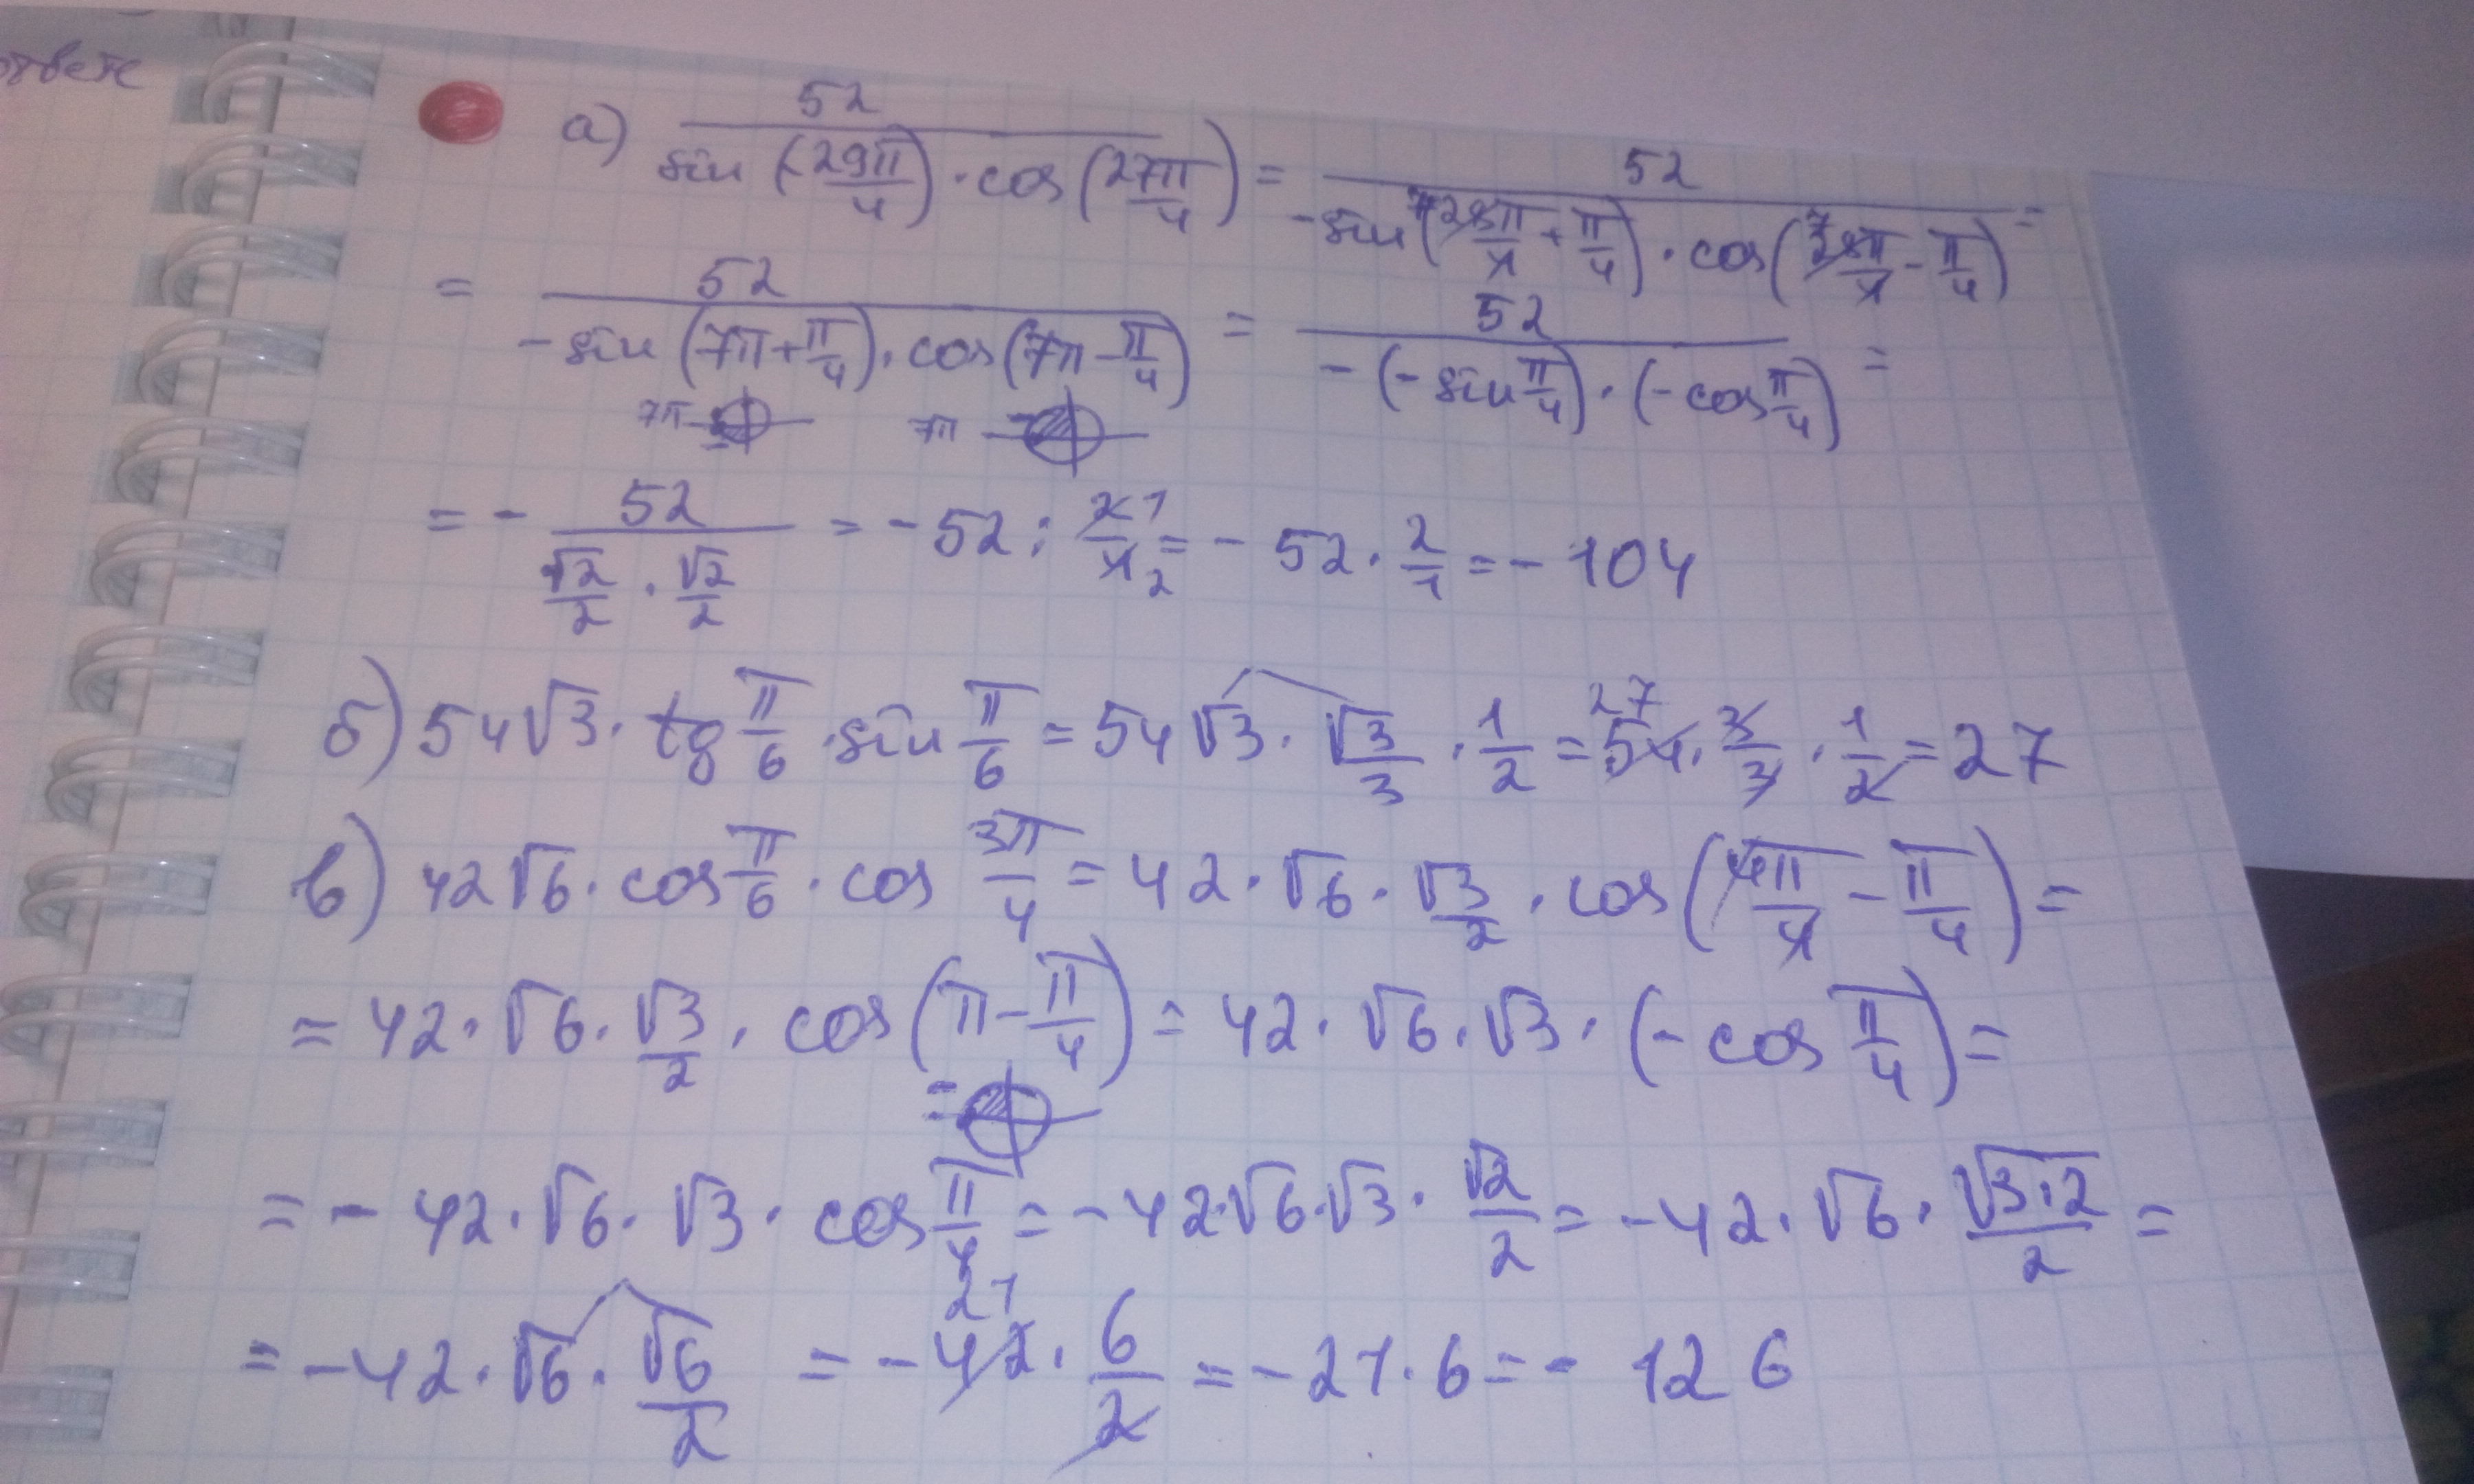 ответе
а) 52/(sin(-29π/4)·cos(27π/4)) = 52/(-sin(28π/4+π/4)·cos(28π/4-π/4)) =
= 52/(-sin(7π+π/4)·cos(7π-π/4)) = 52/(-(-sin π/4)·(-cos π/4)) =
7π 7π
= - 52/(√2/2·√2/2) = -52 : 2/4 1 2 = -52·2/1 = -104
б) 54√3·tg π/6·sin π/6 = 54√3·√3/3·1/2 = 54 27·3/3·1/2 = 27
в) 42√6·cos π/6·cos 3π/4 = 42·√6·√3/2·cos(4π/4-π/4) =
= 42·√6·√3/2·cos(π-π/4) = 42·√6·√3·(-cos π/4) =
= -42·√6·√3·cos π/4 = -42·√6·√3·√2/2 = -42·√6·√3·2/2 =
= -42·√6·√6/2 = -42 21·6/2 = -21·6 = -126